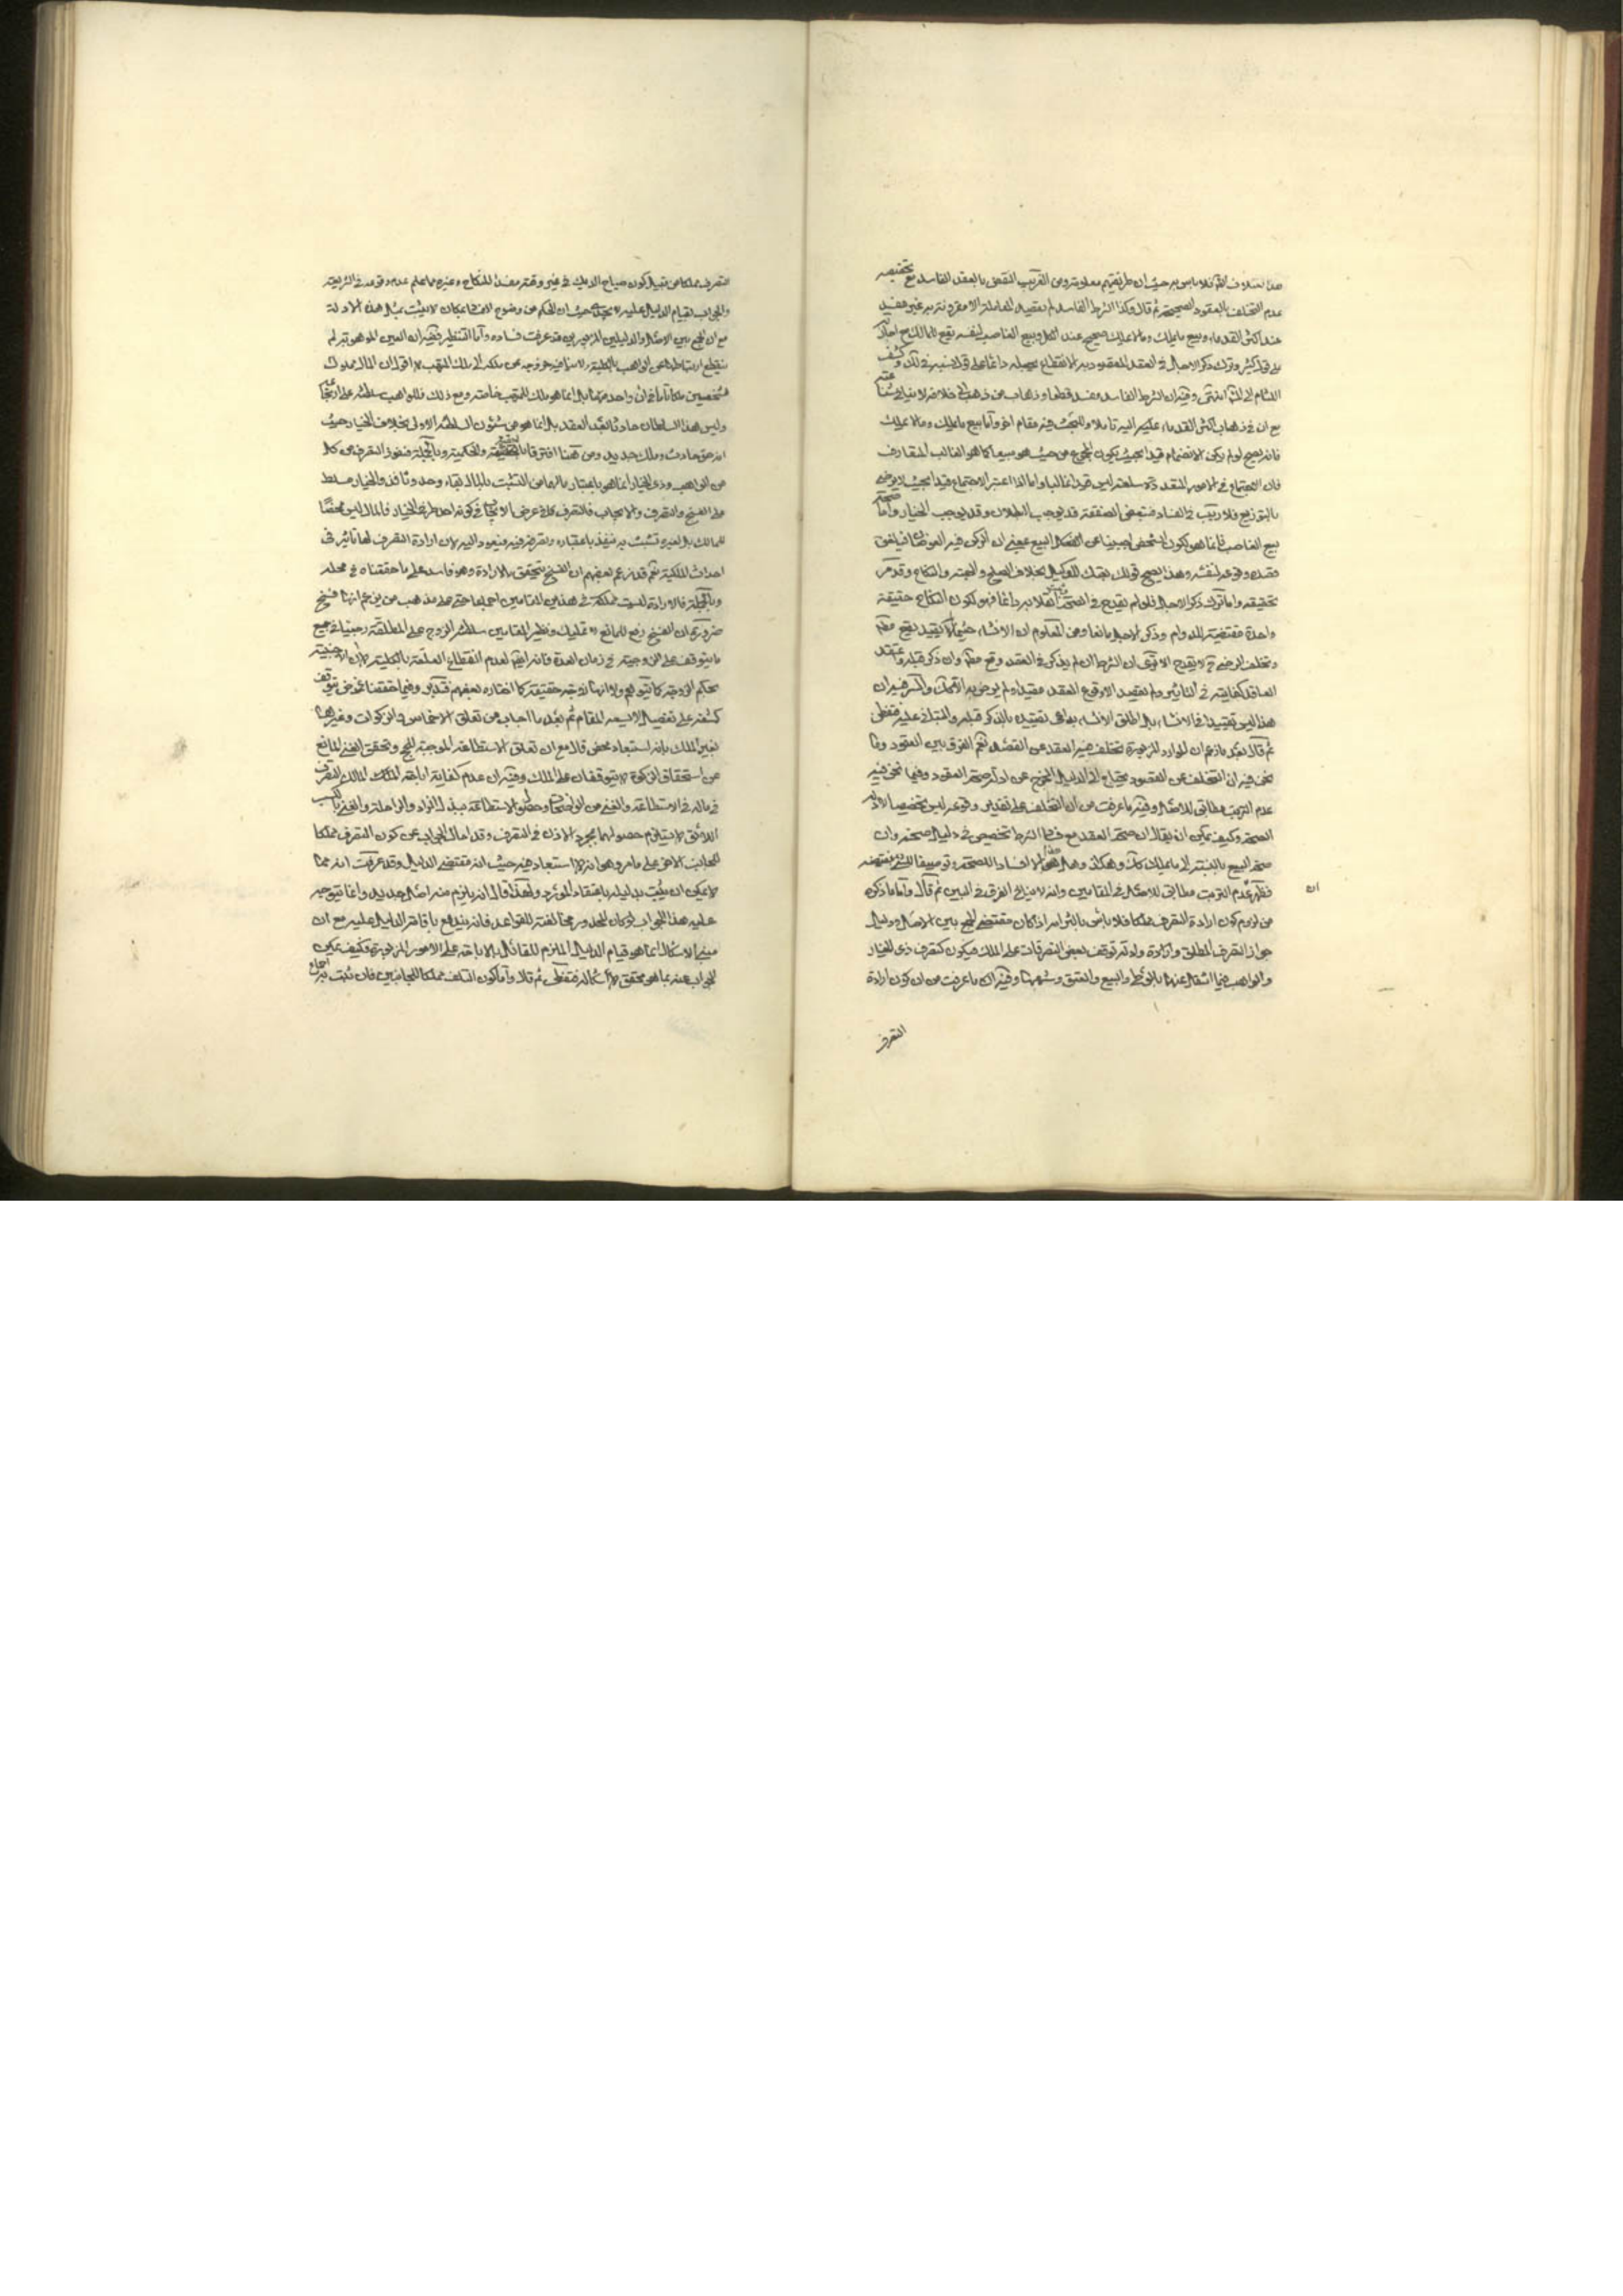 عدم التخلف بالعقود الصحيحة ثم قال وكذا الشرط الفاسد لم يقصد المعاملة الا مقرونة به غير مفسد
عند اكثر القدماء وبيع ما يملك وما لا يملك صحيح عند الكل وبيع الغاصب لنفسه يقع للمالك مع اجازته
على قول كثير وترك ذكر الاجل في العقد المقصود به الانقطاع يجعله دائما على قول نسبه في لك وكشف
اللثام الى المشهور انتهى وفيه ان الشرط الفاسد مفسد قطعا وذهاب من ذهب الى خلافه لا ينافي
مع ان في ذهاب اكثر القدماء عليهم اليه تاملا وللبحث فيه مقام اخر واما بيع ما يملك وما لا يملك
فانه يصح لو لم يكن الانضمام قيدا بحيث يكون المجموع من حيث هو مبيعا كما هو الغالب المتعارف
فان الاجتماع في الامور المتعددة سلعته ليس قيدا غالبا واما اذا اعتبر الاجتماع قيدا بحيث لا يرضى
بالتوزيع فلا ريب في الفساد فتبعض الصفقة قد يوجب البطلان وقد يوجب الخيار واما صحة
بيع الغاصب فانما هو لكون الشخص اجنبيا عن البيع بمعنى ان الركن فيه العوضان فيلغى
قصده وقوعه لنفسه ولهذا يصح قولك بعتك للوكيل بخلاف الصلح والهبة والنكاح وقد مر
تحقيقه واما ترك ذكر الاجل فلو لم يقدح في الصحة دائما فهو لكون النكاح حقيقة
واحدة مقتضية للدوام وذكر الاجل مانعا ومن المعلوم ان الانشاء حيثما لا يقيد يقع مطلقا
وتخلف الرضى ح لا يقدح الا ترى ان الشرط ان لم يذكر في العقد وقع مطلقا وان ذكر قبله
العاقد كفايته في التاثير ولم يقصد الا وقوع العقد مقيدا ولم يرض به الا كك والسر فيه ان
هذا ليس تقييدا في الانشاء بل اطلق الانشاء بداعي تقييده بالذكر قبله والبناء عليه فتفطن
ثم قال بعد ما زعم ان الموارد المزبورة تخلف فيها العقد عن القصد نعم الفرق بين العقود وما
نحن فيه ان التخلف عن العقود يحتاج الى الدليل المخرج عن ادلة صحة العقود وفيما نحن فيه
عدم الترتب مطابق للاصل وفيه ما عرفت من ان التخلف على تقدير وقوعه ليس تخصيصا لادلة
الصحة وكيف يمكن ان يقال ان صحة العقد مع فساد الشرط تخصيص في دليل صحته وان
صحة البيع بالنسبة الى ما يملك كك وهكذا وهل هذا الا
فظهر عدم الترتب مطابق للاصل في المقامين وانه لا ينافي الفرق في البين ثم قال واما ما ذكره
من لزوم كون ارادة التصرف مملكا فلا باس بالتزامه اذا كان مقتضى الجمع بين الاصل ودليل
جواز التصرف المطلق وادلة توقف بعض التصرفات على الملك فيكون كتصرف ذي الخيار
والواهب فيما انتقل عنهما بالوطي والبيع والعتق وشبهها وفيه ان ما عرفت من ان كون ارادة
ان
التصرف
التصرف مملكا من قبيل كون صياح الديك في غير وقته مفسدا للنكاح وغيره مما علم عدم وقوعه في الشريعة
والجواب بقيام الدليل عليه لا يجدي حيث ان الحكم من وضوح الفساد بمكان لا يثبت بمثل هذه الادلة
مع ان الجمع بين الاصل والدليلين المزبورين قد عرفت فساده واما التنظير ففيه ان العين الموهوبة لم
ينقطع ارتباطها عن الواهب بالكلية ولا ينافيه خروجه عن ملكه الى ملك المتهب لا اقول ان المال مملوك
لشخصين ملكا تاما في ان واحد بل انما هو ملك للمتهب خاصة ومع ذلك فللواهب سلطنة على ارتجاعه
وليس هذا السلطان حادثا بعد العقد بل انما هو من شئون السلطنة الاولى بخلاف الخيار حيث
انه حق حادث وملك جديد ومن هنا افترقا بالحقيقة والحكمية وبالجملة فنفوذ التصرف من كل
من الواهب وذي الخيار انما هو باعتبار ما لهما من التشبث بالمال بقاء وحدوثا فذو الخيار مسلط
على الفسخ والتصرف والايجاب فالتصرف كك في عرض الايجاب في كونه احد طرفي الخيار فالمال ليس محضا
للمالك بل لغيره تشبث به فينفذ باعتباره وتصرفه فيه فيعود اليه لان ارادة التصرف لها تاثير في
احداث الملكية نعم قد زعم بعضهم ان الفسخ يتحقق بالارادة وهو فاسد على ما حققناه في محله
وبالجملة فالارادة ليست مملكة في هذين المقامين اجماعا حتى على مذهب من يزعم انها فسخ
ضرورة ان الفسخ رفع للمانع لا تمليك ونظير المقامين سلطنة الزوج على المطلقة رجعيا في جميع
ما يتوقف على الزوجية في زمان العدة فانه ايضا لعدم انقطاع العلقة بالكلية لا لان الاجنبية
بحكم الزوجة كما يتوهم ولا انها زوجة حقيقة كما اختاره بعضهم فتدبر وفيما حققنا غموض يتوقف
كشفه على تفصيل لا يسعه المقام ثم بعد ما اجاب من تعلق الاخماس والزكوات وغيرهما
بغير الملك بانه استبعاد محض قال مع ان تعلق الاستطاعة الموجبة للحج وتحقق الغنى المانع
عن استحقاق الزكوة لا يتوقفان على الملك وفيه ان عدم كفاية اباحة المالك التصرف
في ماله في الاستطاعة والغنى من الواضحات وحصول الاستطاعة ببذل الزاد والراحلة والغنى بالكسب
اللائق لا يستلزم حصولهما بمجرد الاذن في التصرف وقد احال الجواب عن كون التصرف مملكا
للجانب الاخر على ما مر وهو انه لا استبعاد فيه حيث انه مقتضى الدليل وقد عرفت انه مما
لا يمكن ان يثبت بدليله باعتقاد المورد ولهذا قال انه يلزم منه اصل جديد وانما يتوجه
عليه هذا الجواب لو كان المحذور مخالفته للقواعد فانه يندفع باقامة الدليل عليه مع ان
مبنى الاشكال انما هو قيام الدليل الملزم للقائل بالاباحة على الامور المزبورة فكيف يمكن
الجواب عنه بما هو محقق لاشكاله فتفطن ثم قال واما كون التلف مملكا للجانبين فان ثبت باجماع